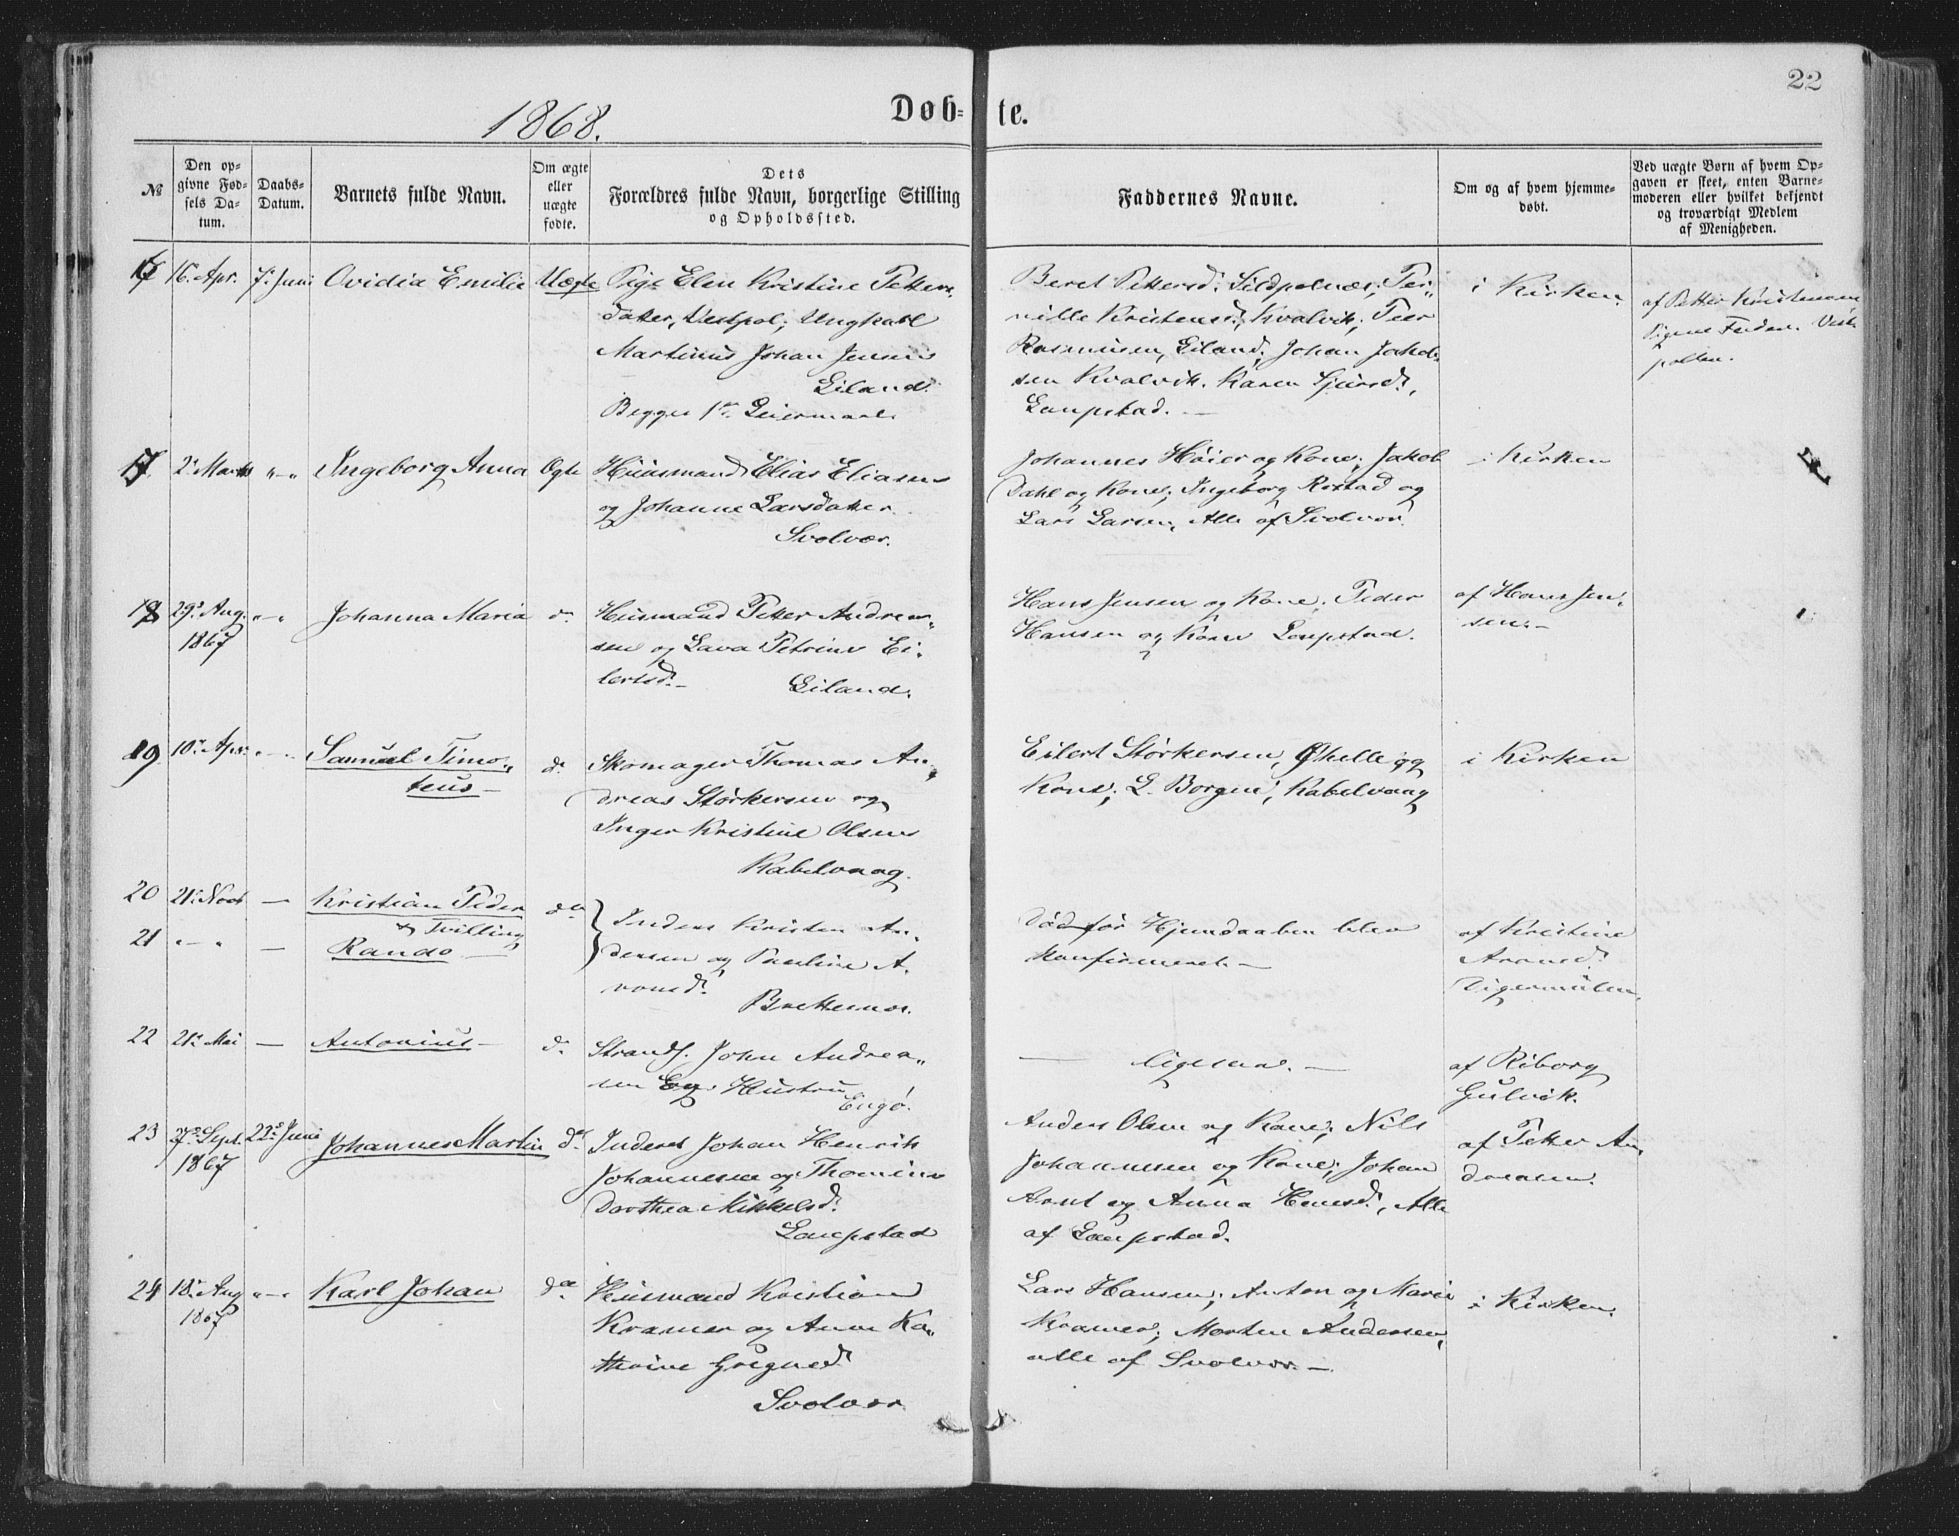 22
1868.
Døb-
te.
№
Den op-
givne Fød-
sels Da-
tum.
Daabs-
Datum.
Barnets fulde Navn.
Om ægte
eller
uægte
fødte.
Dets
Forældres fulde Navn, borgerlige Stilling
og Opholdssted.
Faddernes Navne.
Om og af hvem hjemme-
døbt.
Ved uægte Børn af hvem Op-
gaven er skeet, enten Barne-
moderen eller hvilket bekjendt
og troværdigt Medlem
af Menigheden.
16 16. Apr. 7. Juni Ovidia Emilie Uægte
Pige Elen Kristine Petters-
datter, Vestpol; Ungkarl
Martinus Johan Jensen
Eiland.
Begges 1ste Leiermaal.
Beret Pettersd. Sildpolnes; Per-
nille Kristensd. Kvalvik; Peer
Rasmusen, Eiland; Johan Jakob-
sen Kvalvik. Karen Sjursd.,
Laupstad. —
i Kirken
af Petter Kristensen
Pigens Fader. Vest-
pollen.
17. 2. Marts "-" Ingeborg Anna Ægte
Huusmand Elias Eliasen
og Johanne Larsdatter
Svolvær.
Johannes Høier og Kone; Jakob
Dahl og Kone; Ingeborg Rystad og
Lars Larsen, Alle af Svolvær.
i Kirken
18 29. Aug. "-" Johanna Maria do.
1867
Huusmand Petter Andrea-
sen og Lava Petrine Ei-
lertsd. — Eiland.
Hans Jensen og Kone; Peder
Hansen og Kone Laupstad.
af Hans Jen-
sen. —
19. 10. Apr. "-" Samuel Timo-
teus — do.
Skomager Thomas An-
dreas Størkersen og
Inger Kristine Olsen
Kabelvaag.
Eilert Størkersen, Ghelle og
Kone; L. Borgen, Kabelvaag
i Kirken
20 21. Novb — Kristian Peder do.
Tvilling
21 "-" — Rando —
Inders Kristen An-
dersen og Pauline A-
ronsd.
Brettesnes.
Død før Hjemdaaben blev
konfirmeret. —
af Kristine
Aronsd.
Digermulen.
22 21. Mai — Antonius — do.
Strands. John Andrea-
sen Eg. Hustru
Engø.
— ligesaa. —
af Riborg
Gulvik.
23 27. Sept. 22. Juni Johannes Martin do.
1867
Inderst Johan Henrik
Johannesen og Thomine
Dorthea Mikkelsd.
Laupstad
Anders Olsen og Kone; Nils
Johannesen og Kone; Johan
Arnt og Anna Hansd., Alle
af Laupstad.
af Petter An-
dreasen.
24 18. Aug "-" Karl Johan do.
1867
Huusmand Kristian
Kramer og Anne Ka-
thrine Gregusd.
Svolvær
Lars Hansen; Anton og Marie
Kramer; Morten Andersen,
alle af Svolvær. —
i Kirken.